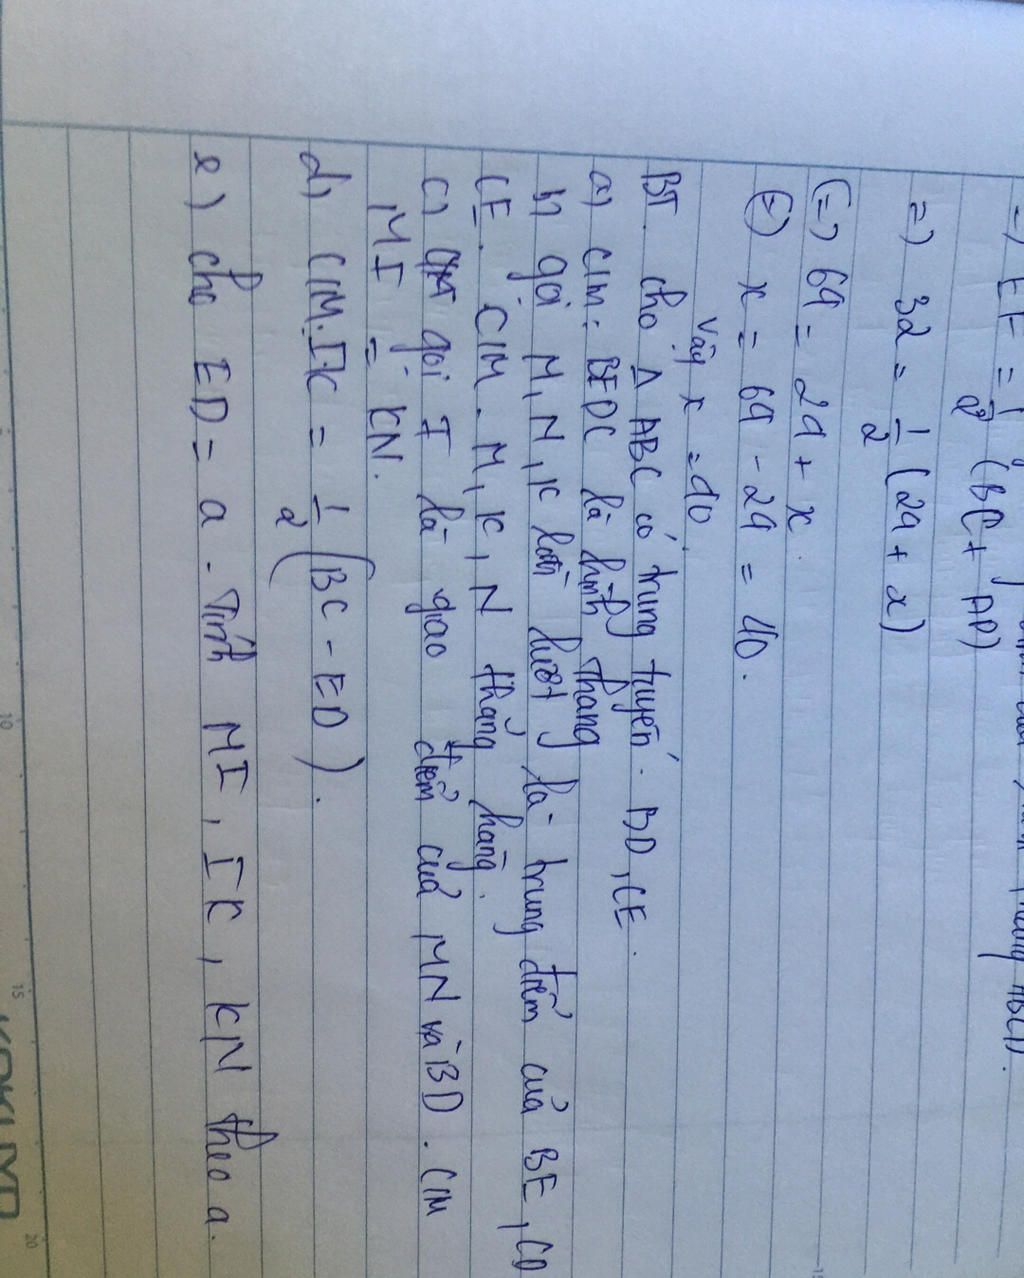 =) EF = 1/2 (BC + AD)
=) 32 = 1/2 (24 + x)
(=) 64 = 24 + x.
(=) x = 64 - 24 = 40.
Vậy x = 40.
BT. Cho Δ ABC có trung tuyến. BD, CE.
a) C/m: BEDC là hình thang
b) gọi M, N, K lần lượt là trung điểm của BE, CD
CE. C/M. M, K, N thẳng hàng.
c) gọi I là giao điểm của MN và BD. C/M
MI = KN.
d) C/M. IK = 1/2 (BC - ED).
e) cho ED = a. Tính MI, IK, KN theo a.
10
15
20